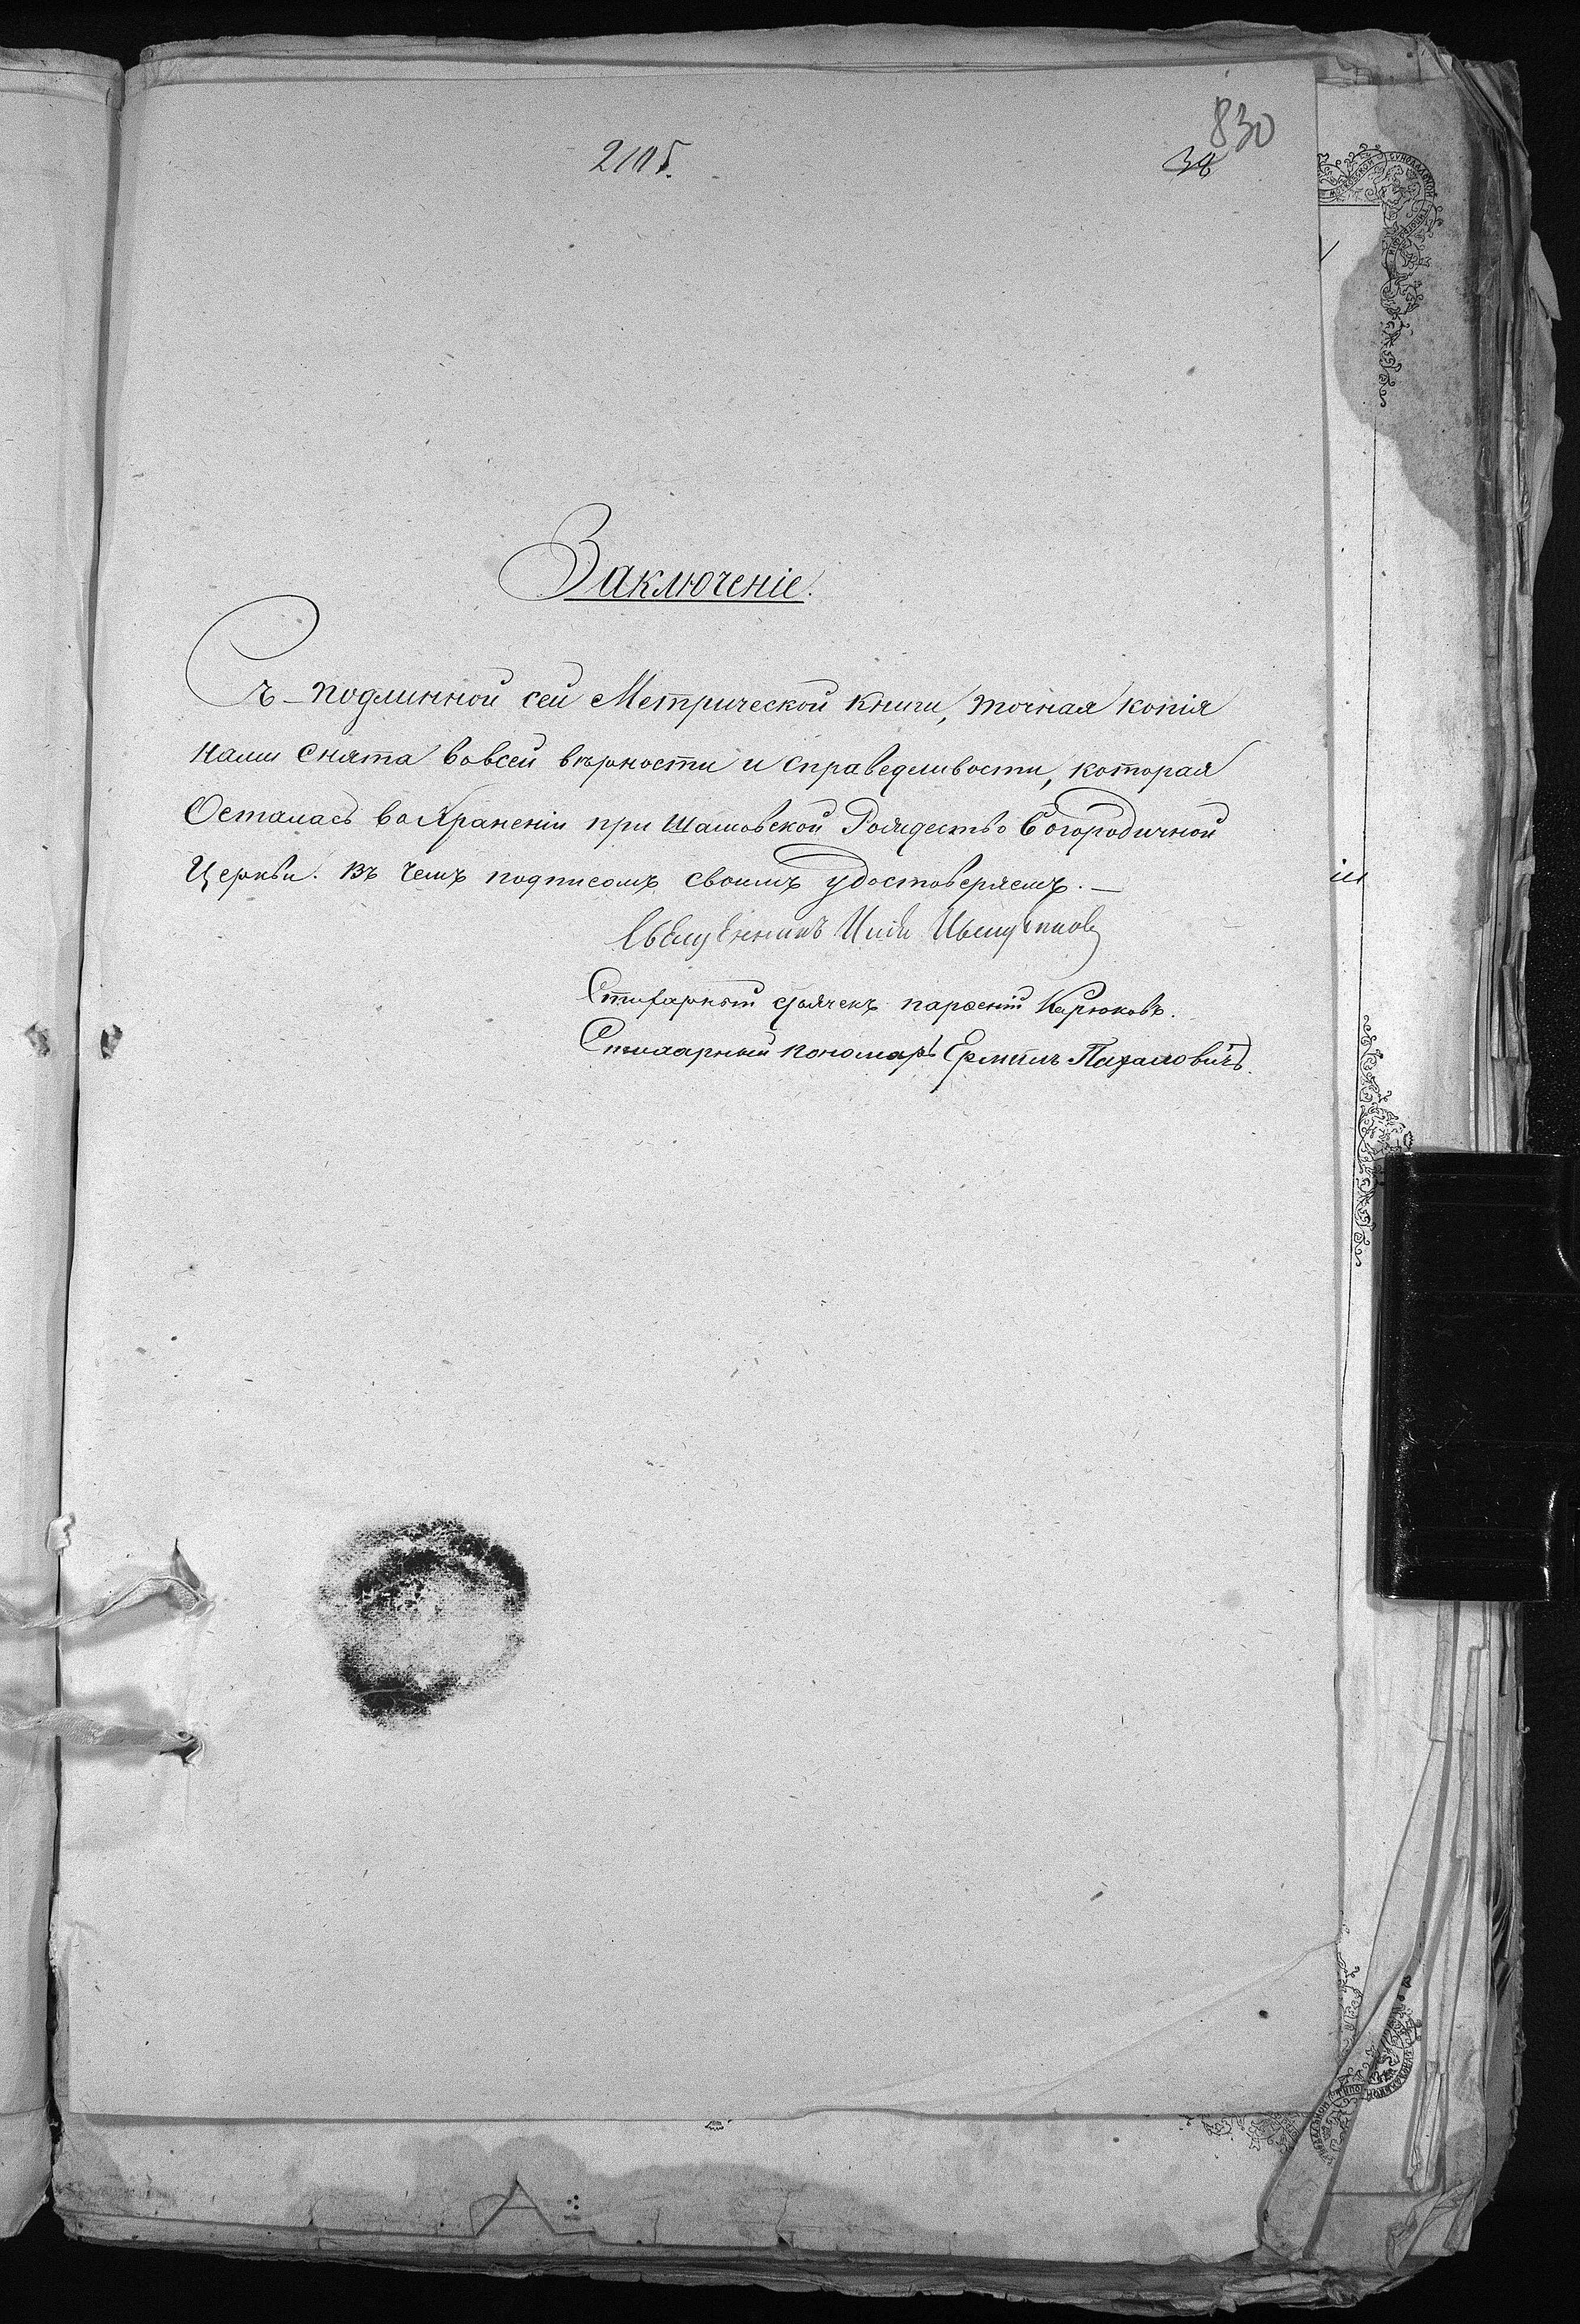 830
2105.
38
Заключеніе.
Съ подлинной сей Метрической книги, точная копія
нами снята вовсей вѣрности и справедливости, которая
Осталась во Храненіи при Шаловской Рождество Богородичной
Церкви. Въ чемъ подписомъ своимъ удостоверяемъ. —
Священникъ
Стихарный дьячекъ парѳеній Карюковъ.
Стихарный пономарь Ермилъ